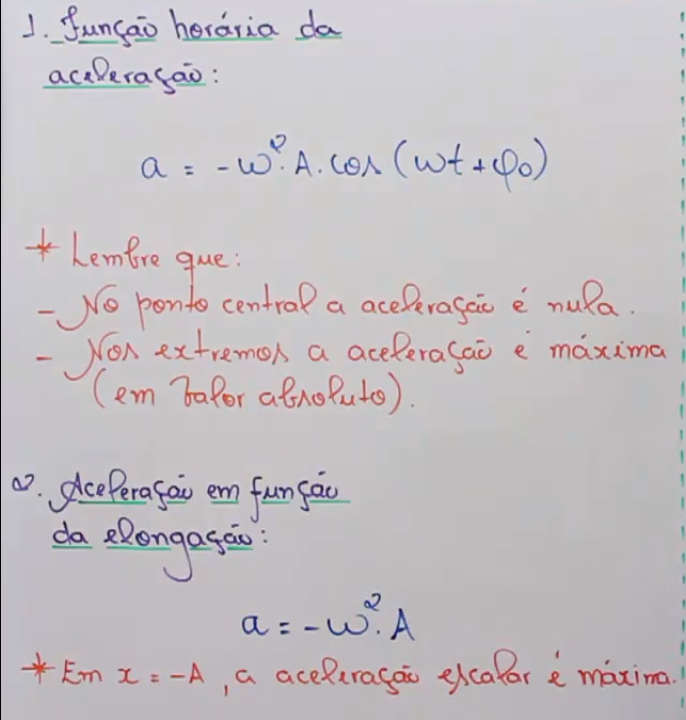 1. Função horária da
aceleração:
a = -ω². A. cos (ωt + φ₀)
* Lembre que:
- No ponto central a aceleração é nula.
- Nos extremos a aceleração é máxima
(em valor absoluto).
2. Aceleração em função
da elongação:
a = -ω². A
* Em x = -A, a aceleração escalar é máxima.